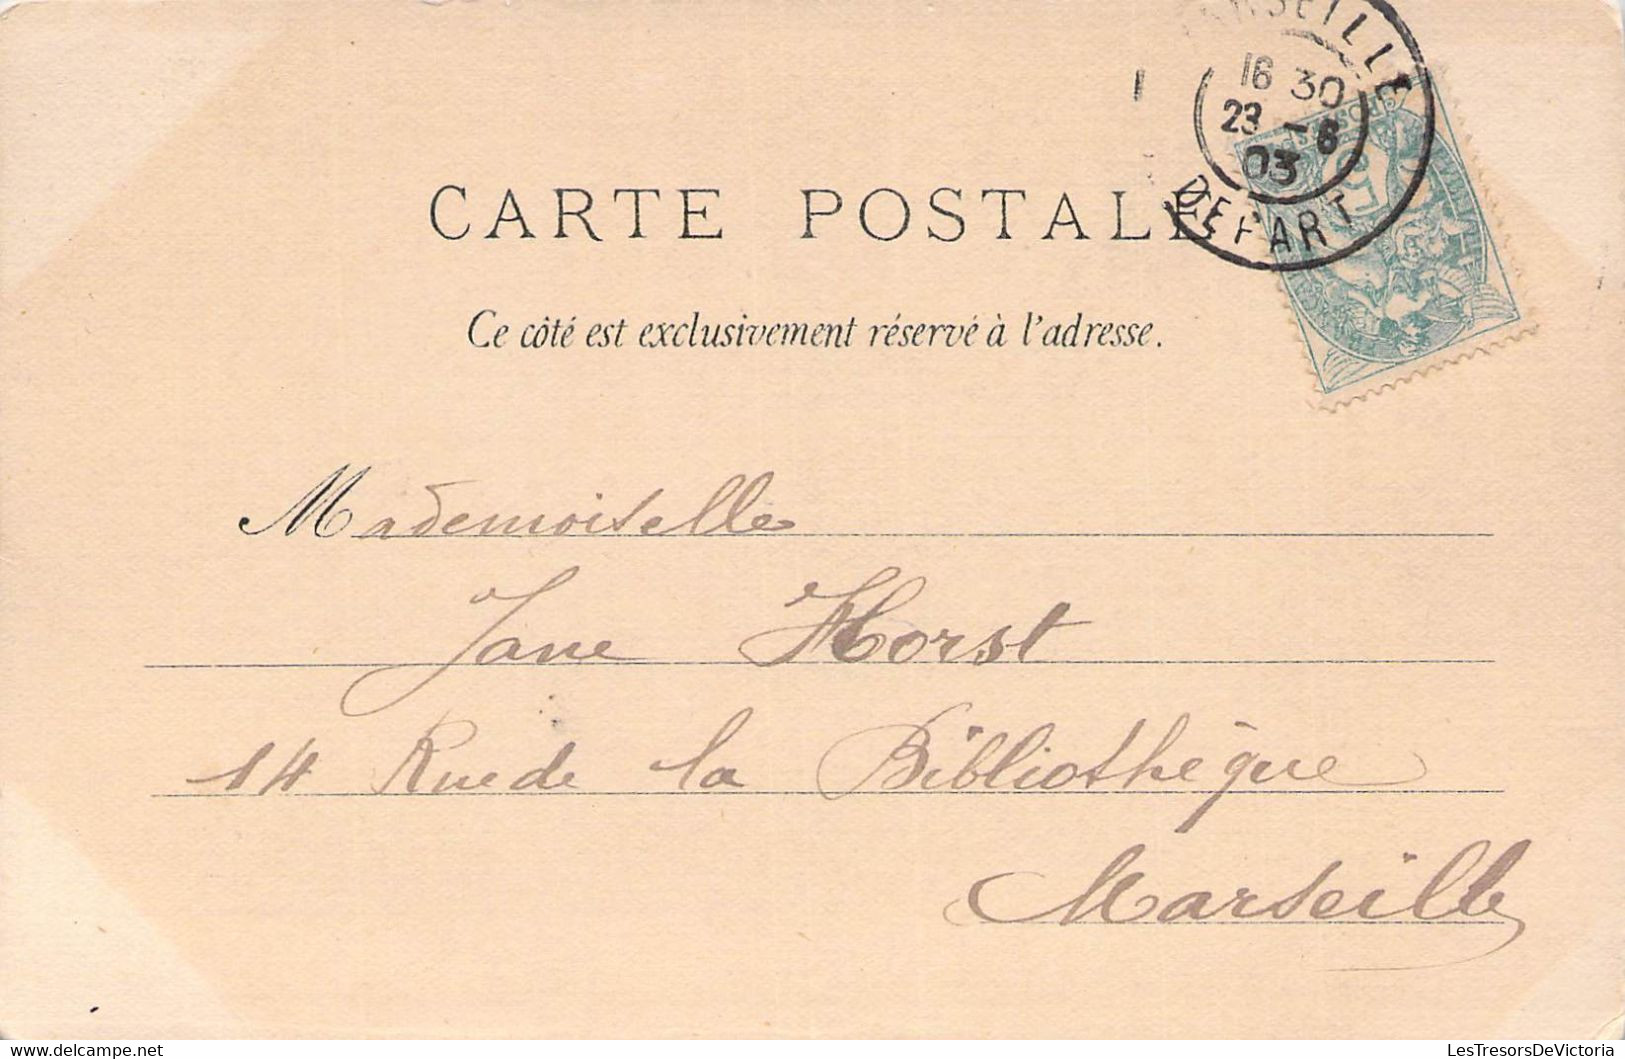 MARSEILLE
16 30
23 - 6
03
DEPART
CARTE POSTALE
Ce côté est exclusivement réservé à l'adresse.
Mademoiselle
Jane Horst
14 Rue de la Bibliothèque
Marseille
LesTresorsDeVictoria